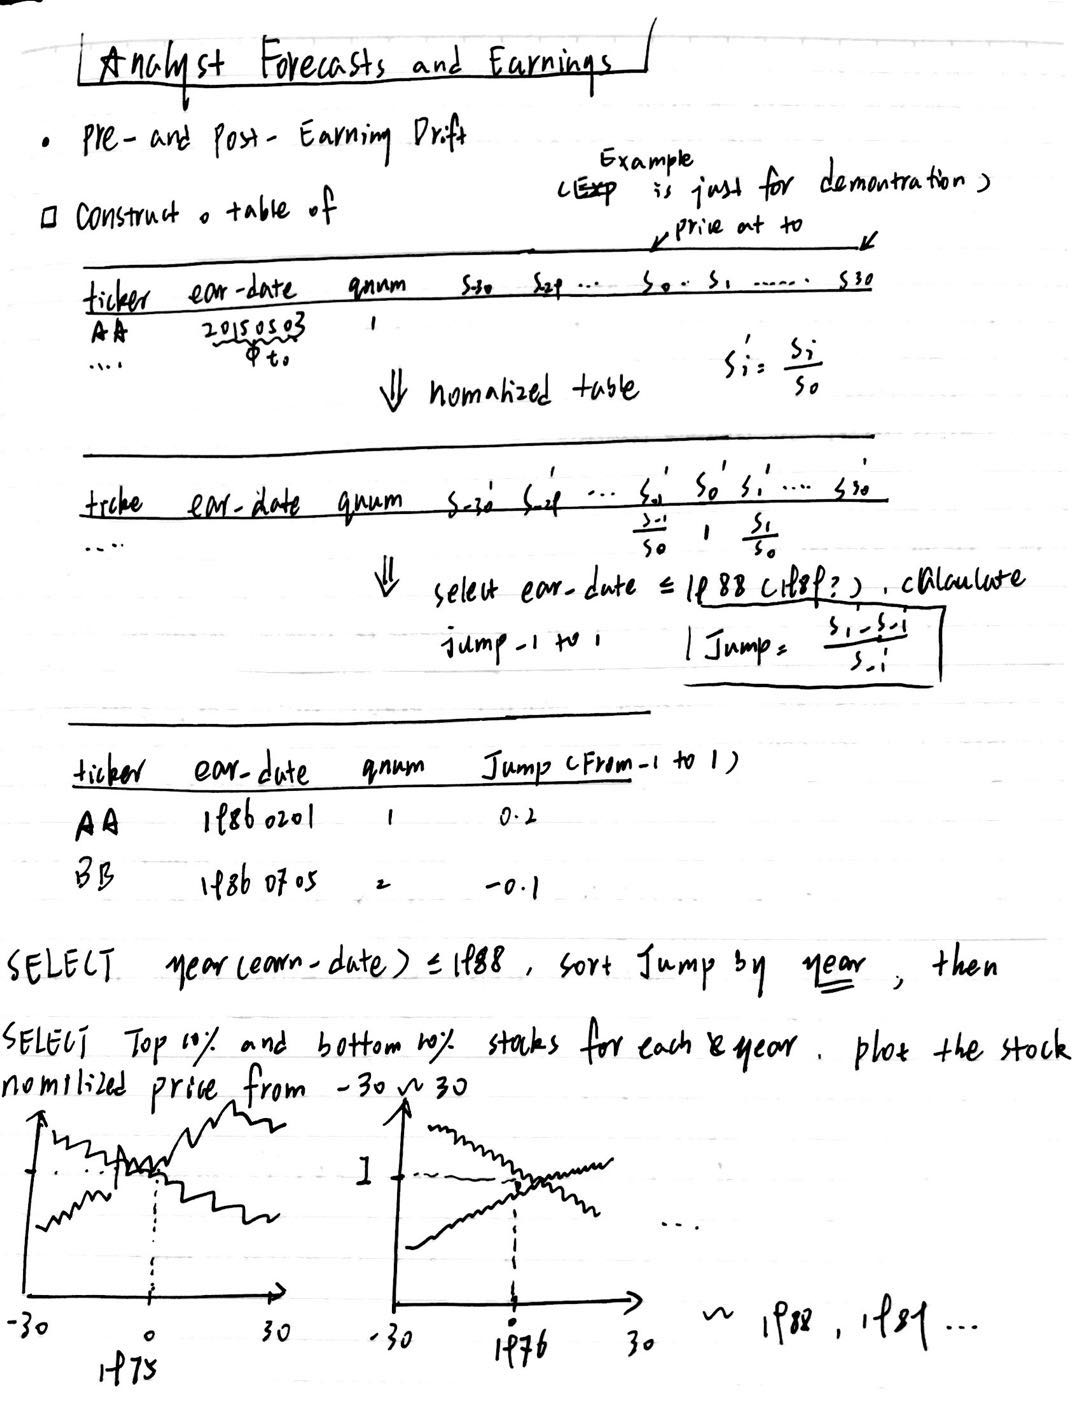 Analyst Forecasts and Earnings
• Pre- and Post- Earning Drift
Example
(Exp is just for demontration)
□ Construct a table of
price at t0
ticker ear-date qnum S-30 S-29 ... S0 .. S1 ....... S30
AA 20150503 1
.... t0
Si' = Si/S0
⇓ nomalized table
ticke ear-date qnum S-30' S-29' ... S-1' S0' S1' .... S30'
.... S-1/S0 1 S1/S0
⇓ select ear-date ≤ 1988 (1989?), calaulate
jump -1 to 1 | Jump = (S1' - S-1')/S-1'
ticker ear-date qnum Jump (From -1 to 1)
AA 19860201 1 0.2
BB 19860705 2 -0.1
SELECT year(earn-date) ≤ 1988, sort Jump by year, then
SELECT Top 10% and bottom 10% stocks for each year. plot the stock
nomilized price from -30 ~ 30
1
...
-30 0 30 -30 0 30
1975 1976 ~ 1988, 1989 ...